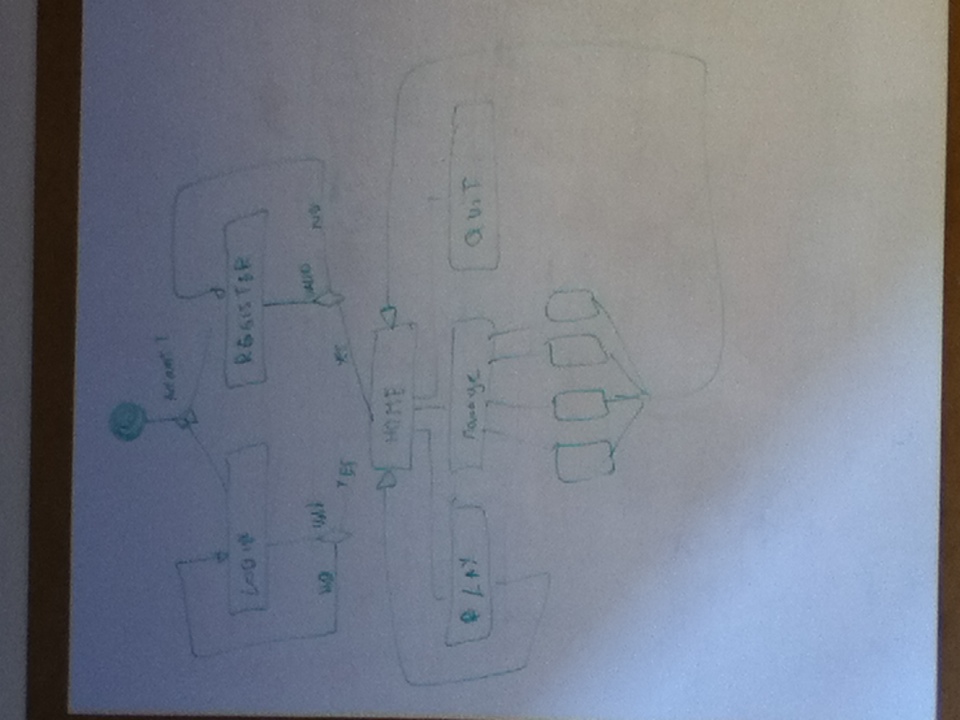 Account ?
LOGIN
REGISTER
VALID
NO
YES
VALID
YES
NO
HOME
PLAY
manage
QUIT